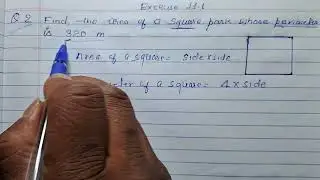 Exercise 11.1
Q 2 Find the area of a square park whose perimeter
is 320 m
Area of a square = side x side
of a square = 4 x side